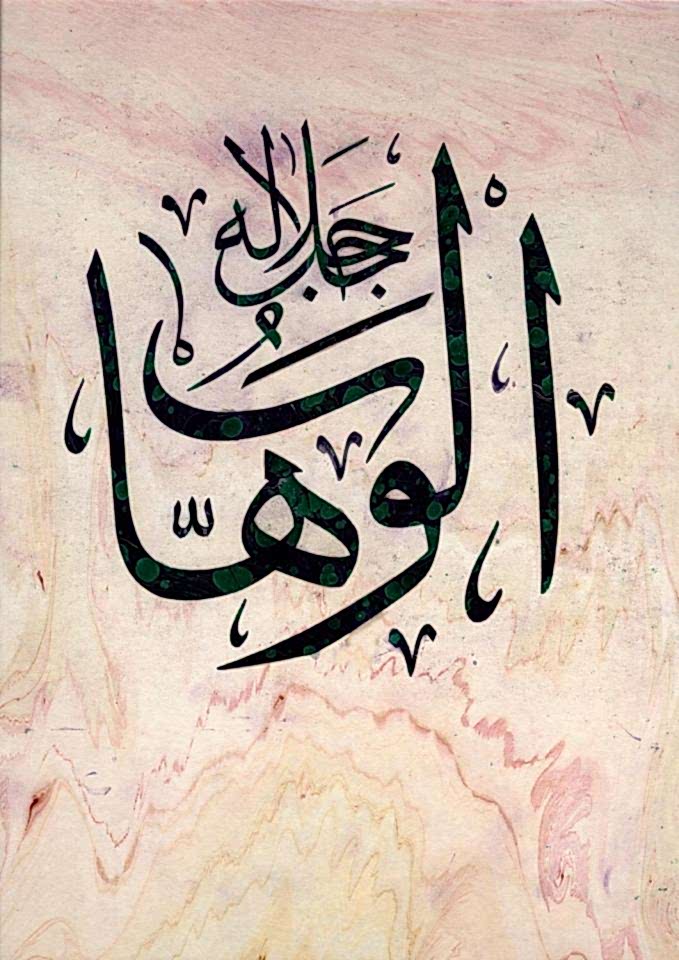 الوهاب
جل جلاله